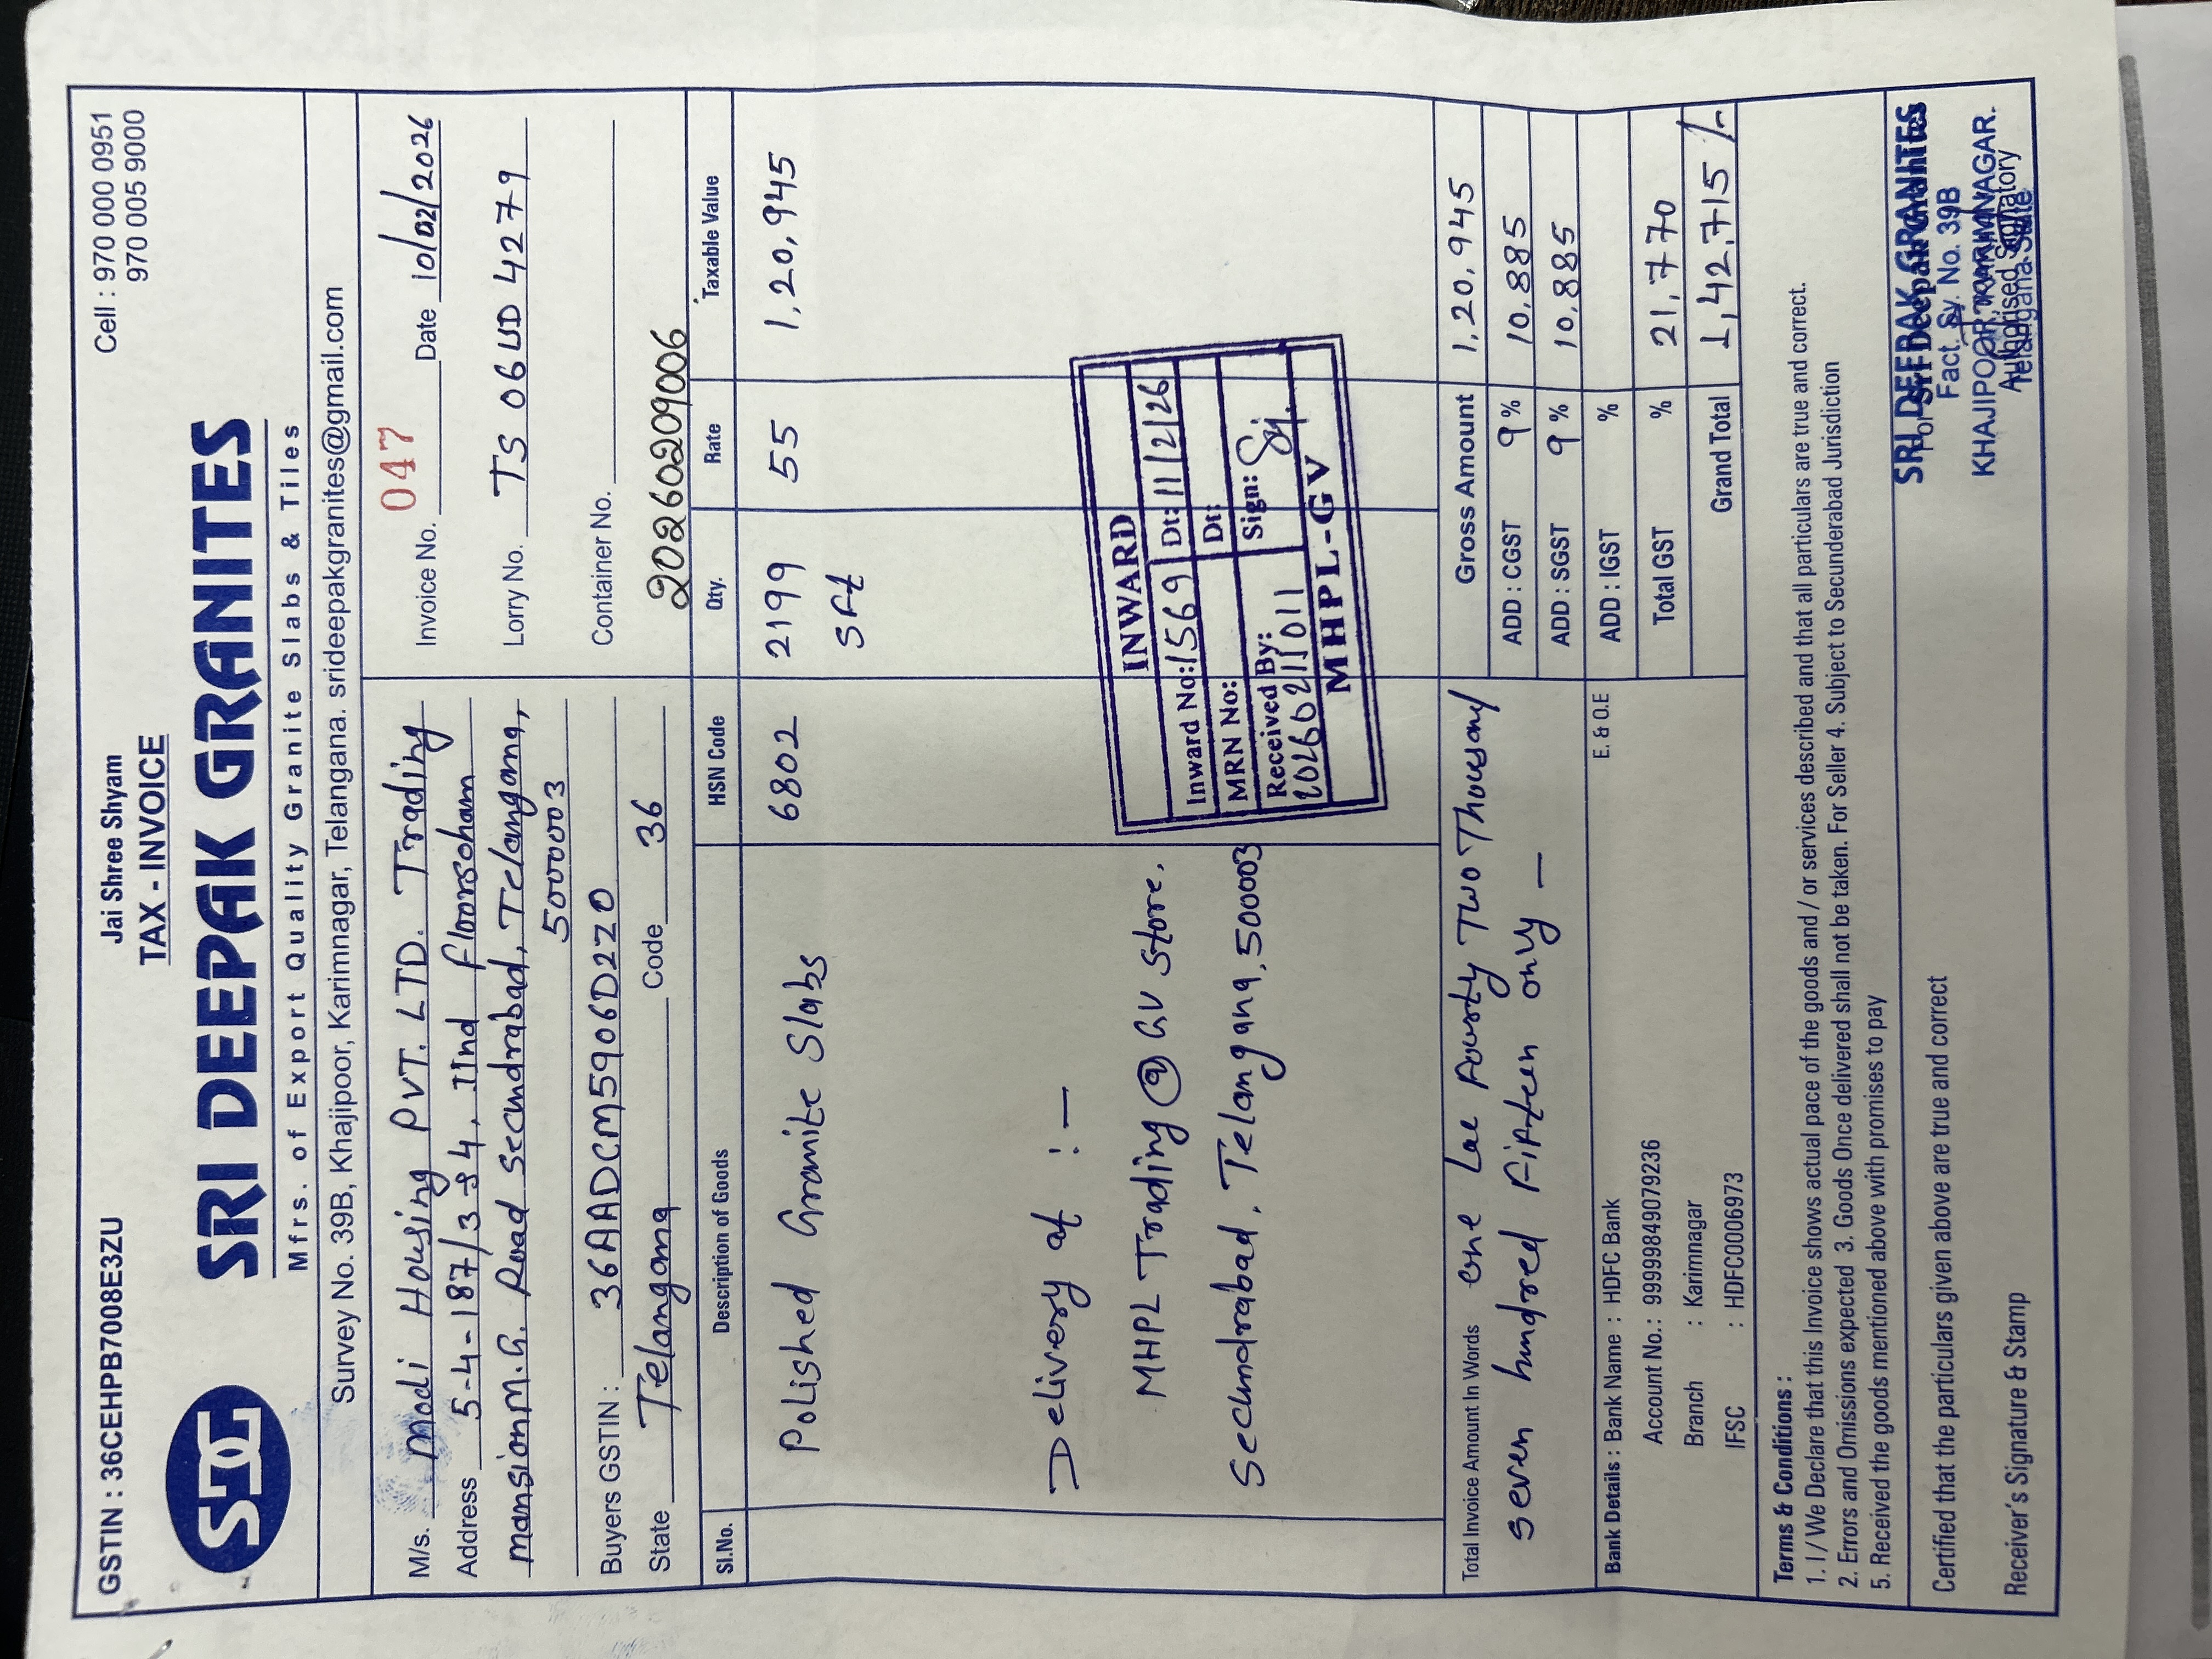 GSTIN : 36CEHPB7008E3ZU
Jai Shree Shyam
Cell : 970 000 0951
TAX - INVOICE
970 005 9000
SDG
SRI DEEPAK GRANITES
Mfrs. of Export Quality Granite Slabs & Tiles
Survey No. 39B, Khajipoor, Karimnagar, Telangana. srideepakgranites@gmail.com
M/s. Modi Housing PVT. LTD. Trading
Address 5-4-187/3-84, IInd floorsoham
mansionM.G. Road Secundrabad, Telangana,
5000003
Buyers GSTIN : 36AADCM5906D2ZO
State Telangana Code 36
Invoice No. 047 Date 10/02/2026
Lorry No. TS 06UD 4279
Container No.
20260209006
Sl.No. Description of Goods HSN Code Qty. Rate Taxable Value
Polished Granite Slabs 6802 2199 55 1,20,945
Sft
Delivery at :-
MHPL Trading @ GV Store.
Secundrabad, Telangana, 500003
INWARD
Inward No: 1569 Dt: 11/2/26
MRN No: Dt:
Received By: Sign:
20260211011
MHPL-GV
Total Invoice Amount In Words one Lac Fourty Two Thousand
seven hundred Fifteen only —
Gross Amount 1,20,945
ADD : CGST 9 % 10,885
ADD : SGST 9 % 10,885
ADD : IGST %
Total GST % 21,770
Grand Total 1,42,715/-
E. & O.E
Bank Details : Bank Name : HDFC Bank
Account No. : 99999849079236
Branch : Karimnagar
IFSC : HDFC0006973
Terms & Conditions :
1. I / We Declare that this Invoice shows actual pace of the goods and / or services described and that all particulars are true and correct.
2. Errors and Omissions expected 3. Goods Once delivered shall not be taken. For Seller 4. Subject to Secunderabad Jurisdiction
5. Received the goods mentioned above with promises to pay
Certified that the particulars given above are true and correct
Receiver's Signature & Stamp
For Sri Deepak Granites
Authorised Signatory
SRI DEEPAK GRANITES
Fact. Sy. No. 39B
KHAJIPOOR, KARIMNAGAR.
Telangana State